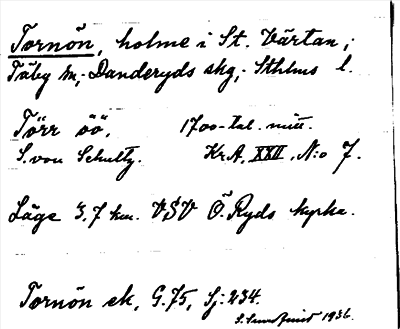 Tornön, holme i St. Värtan;
Täby sn; Danderyds skg; Sthlms l.
Törr öö. 1700-tal. mitt.
S. von Schultz. Kr.A. XXII. N:o 7.
Läge 3,7 km. VSV Ö. Ryds kyrka.
Tornön ek, G.75, Sj:234.
1936.